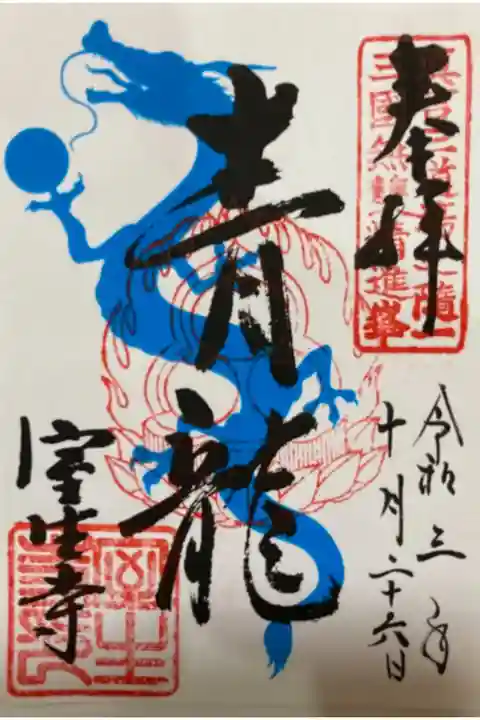 奉拝
令和三年
十月二十六日
青龍
室生寺